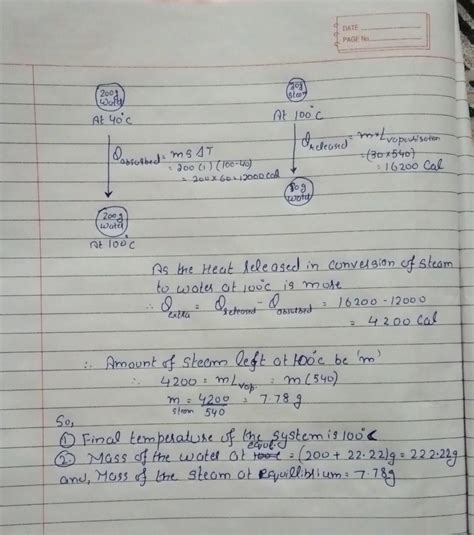 DATE
PAGE No.
200g
Water
30g
Steam
At 40°C
At 100°C
Q absorbed = m S ΔT
= 200(1)(100-40)
= 200×60=12000 Cal
Q released = m×L vaporisation
= (30×540)
= 16200 Cal
200g
Water
30g
Water
At 100°C
As the Heat released in conversion of steam
to water at 100°C is more
∴ Q extra = Q released - Q absorbed = 16200-12000
= 4200 Cal
∴ Amount of steam left at 100°C be 'm'
∴ 4200 = mLvap. = m(540)
m steam = 4200/540 = 7.78g
So,
① Final temperature of the system is 100°C
② Mass of the water at equili. = (200 + 22.22)g = 222.22g
and, Mass of the steam at Equillibrium = 7.78g